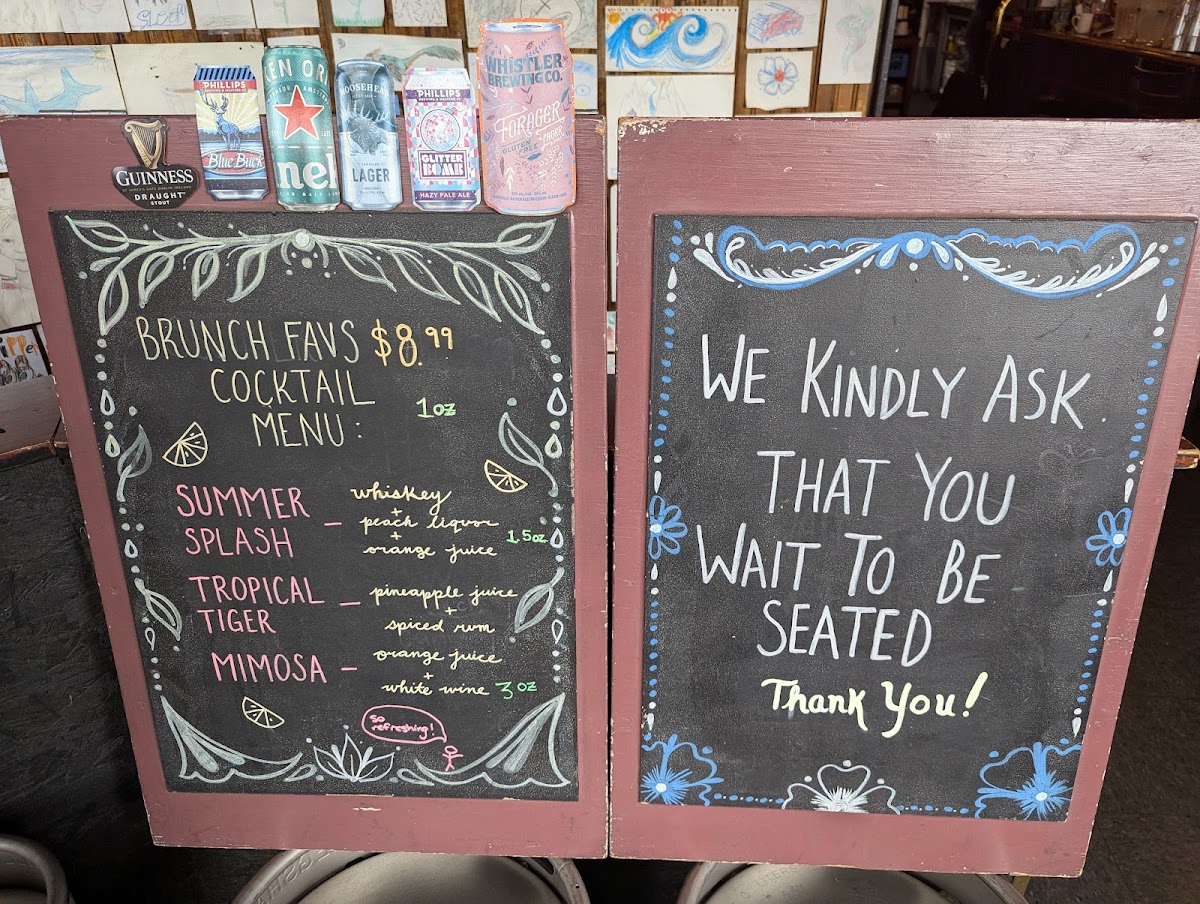 SLEEP
GUINNESS
DRAUGHT
STOUT
PHILLIPS
Blue Buck
EN OR
nel
MOOSEHEAD
LAGER
PHILLIPS
GLITTER
BOMB
HAZY PALE ALE
WHISTLER
BREWING CO.
FORAGER
GLUTEN FREE
LAGER
BRUNCH FAVS $8.99
COCKTAIL
MENU: 1oz
SUMMER
SPLASH - whiskey
+
peach liquor
+
orange juice 1.5oz
TROPICAL
TIGER - pineapple juice
+
spiced rum
MIMOSA - orange juice
+
white wine 3 oz
so
refreshing!
WE KINDLY ASK
THAT YOU
WAIT TO BE
SEATED
Thank You!